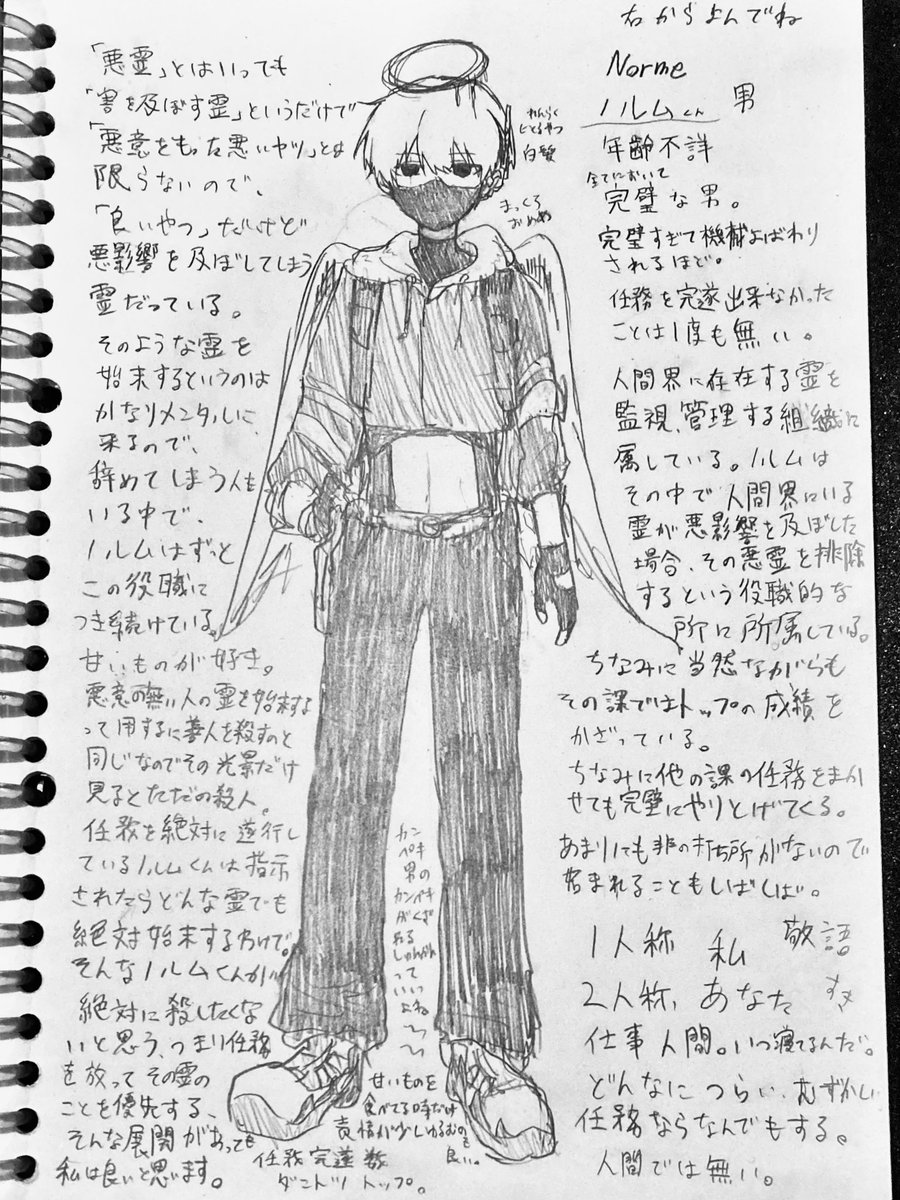 右からよんでね
Norme
ノルムくん 男
年齢不詳
全てにおいて
完璧な男。
完璧すぎて機械よばわり
されるほど。
任務を完遂出来なかった
ことは1度も無い。
人間界に存在する霊を
監視、管理する組織に
属している。ノルムは
その中で人間界にいる
霊が悪影響を及ぼした
場合、その悪霊を排除
するという役職的な
所に所属している。
ちなみに当然ながらも
その課ではトップの成績を
かざっている。
ちなみに他の課の任務をまか
せても完璧にやりとげてくる。
あまりにも非の打ち所がないので
妬まれることもしばしば。
1人称 私 敬語
2人称、あなた
仕事人間。いつ寝てるんだ。
どんなにつらい、むずかしい
任務ならなんでもする。
人間では無い。
れんらく
とるやつ
白髪
まっくろ
おめめ
「悪霊」とはいっても
「害を及ぼす霊」というだけで
「悪意をもった悪いヤツ」とは
限らないので、
「良いやつ」だけど
悪影響を及ぼしてしまう
霊だっている。
そのような霊を
始末するというのは
かなりメンタルに
来るので、
辞めてしまう人も
いる中で、
ノルムはずっと
この役職に
つき続けている。
甘いものが好き。
悪意の無い人の霊を始末するな
って用するに善人を殺すのと
同じなのでその光景だけ
見るとただの殺人。
任務を絶対に遂行し
ているノルムくんは指示
されたらどんな霊でも
絶対始末するわけで。
そんなノルムくんが
絶対に殺したくな
いと思う、つまり任務
を放ってその霊の
ことを優先する、
そんな展開があっても
私は良いと思います。
カン
ペキ
男の
カンペキ
がくず
れる
しゅんかん
って
いい
よね
〜〜
甘いものを
食べてる時だけ
表情が少しゆるむのも
良い。
任務完遂数
ダントツトップ。